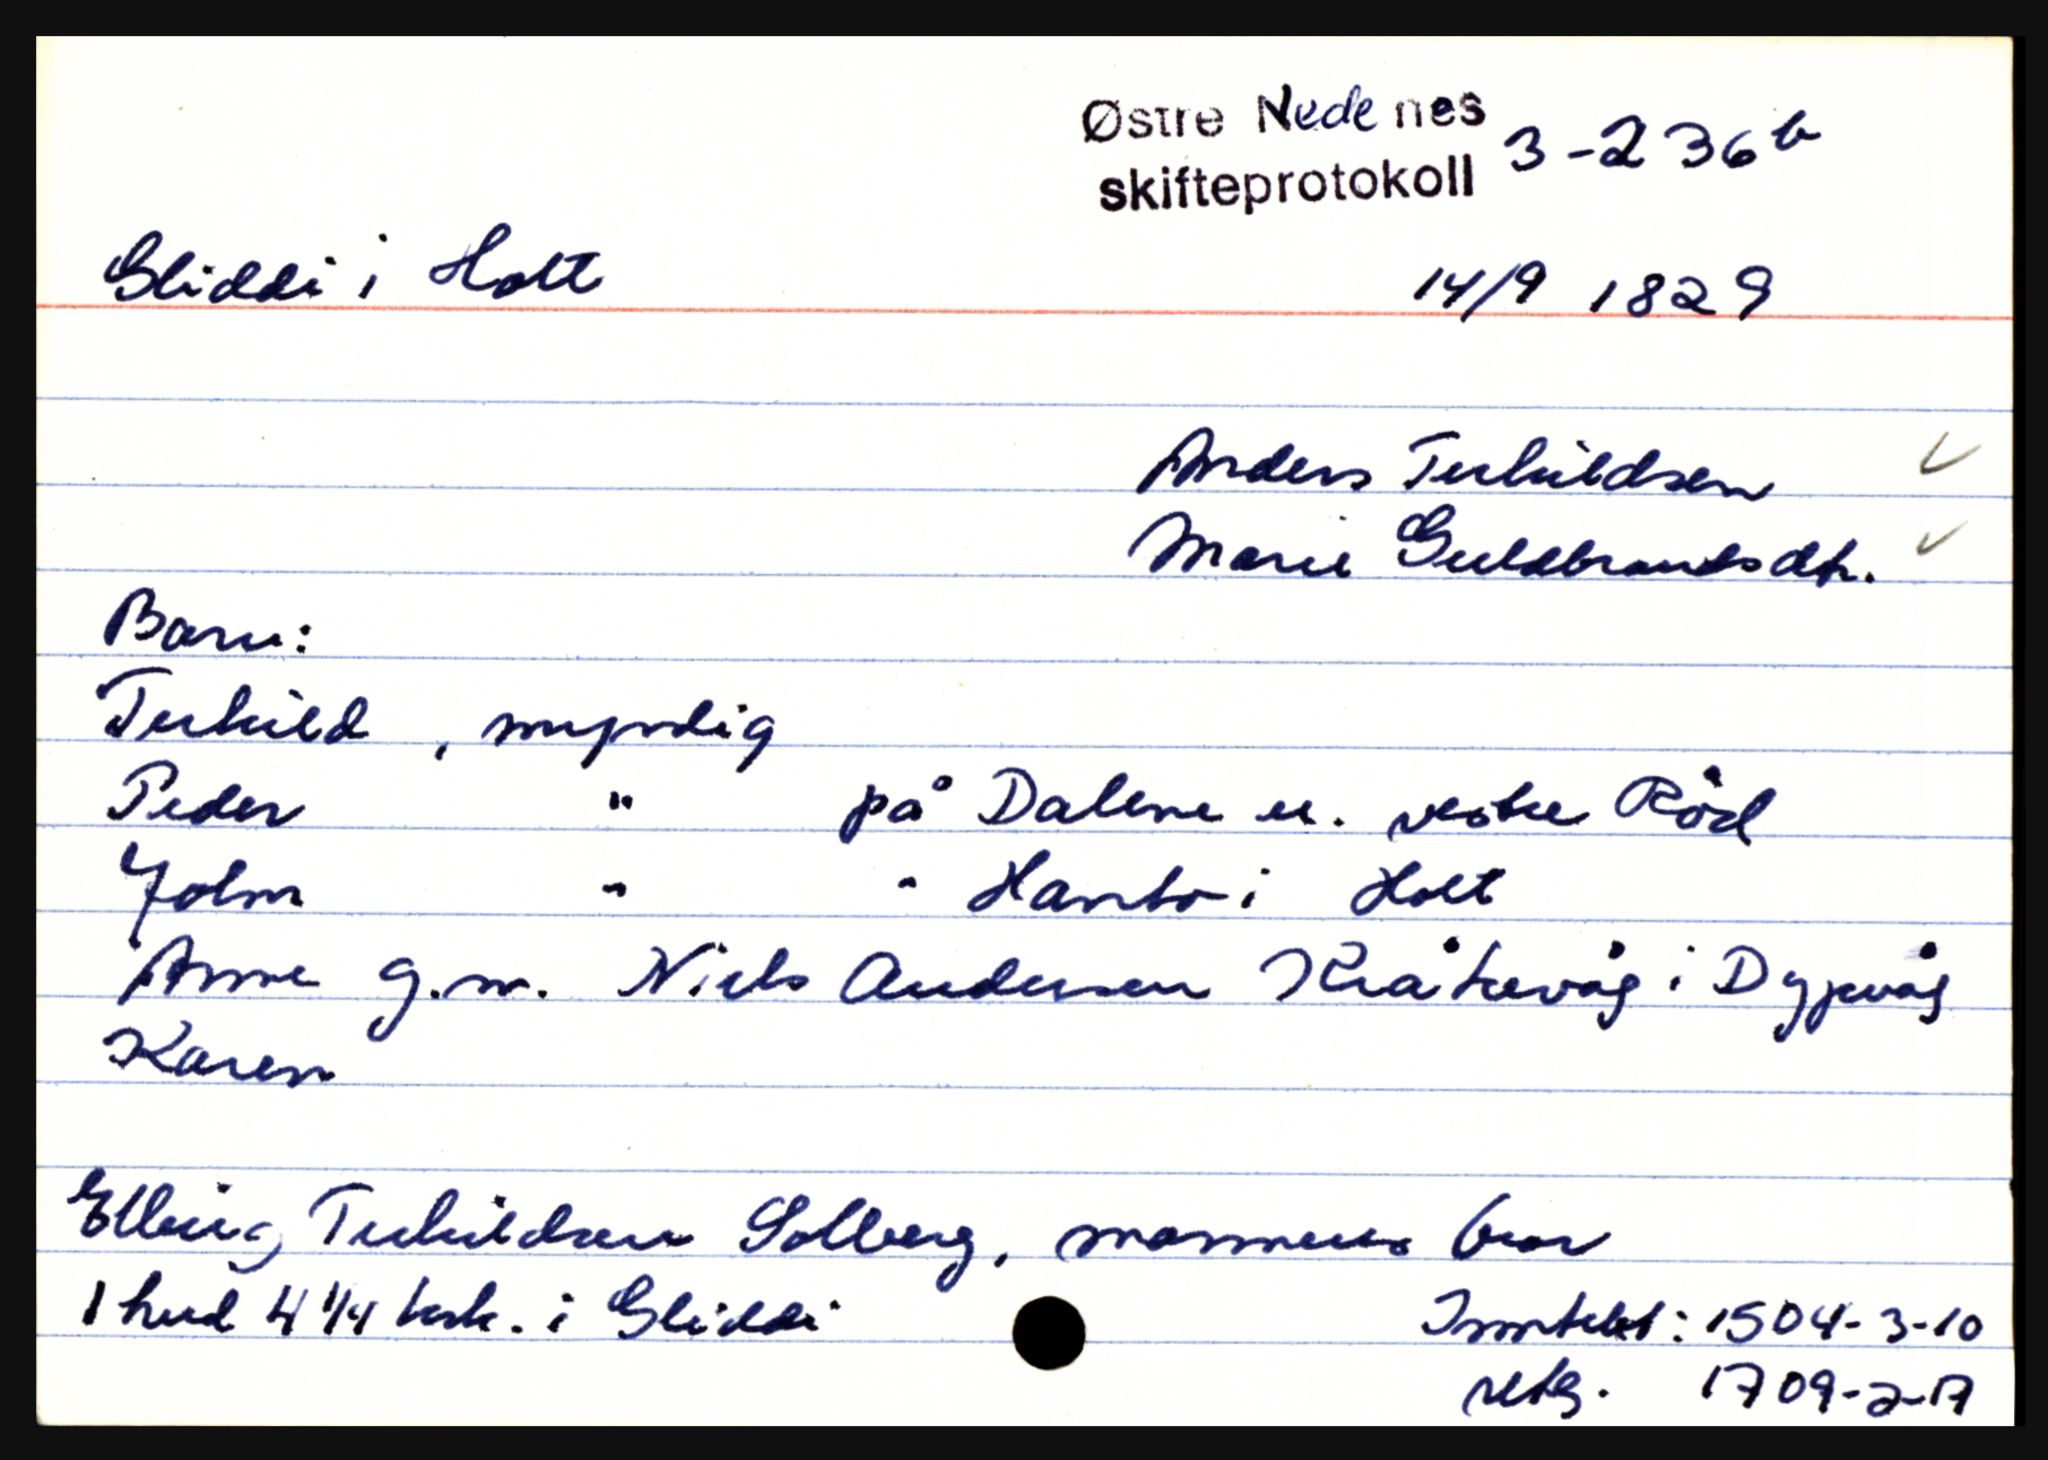 Østre Nedenes
skifteprotokoll 3-236b
Gliddi i Holt 14/9 1829
Anders Terkildsen
Marie Guldbrantsdtr.
Barn:
Terkild, myndig
Peder " på Dalene u. vestre Röd
John " " Hanto i Holt
Anne g.m. Niels Andersen Kråkevåg i Dypvåg
Karen
Elling Terkildsen Solberg, mannens bror
1 hud 4 1/4 ksk. i Gliddi
Inntekt: 1504-3-10
utg. 1709-2-17